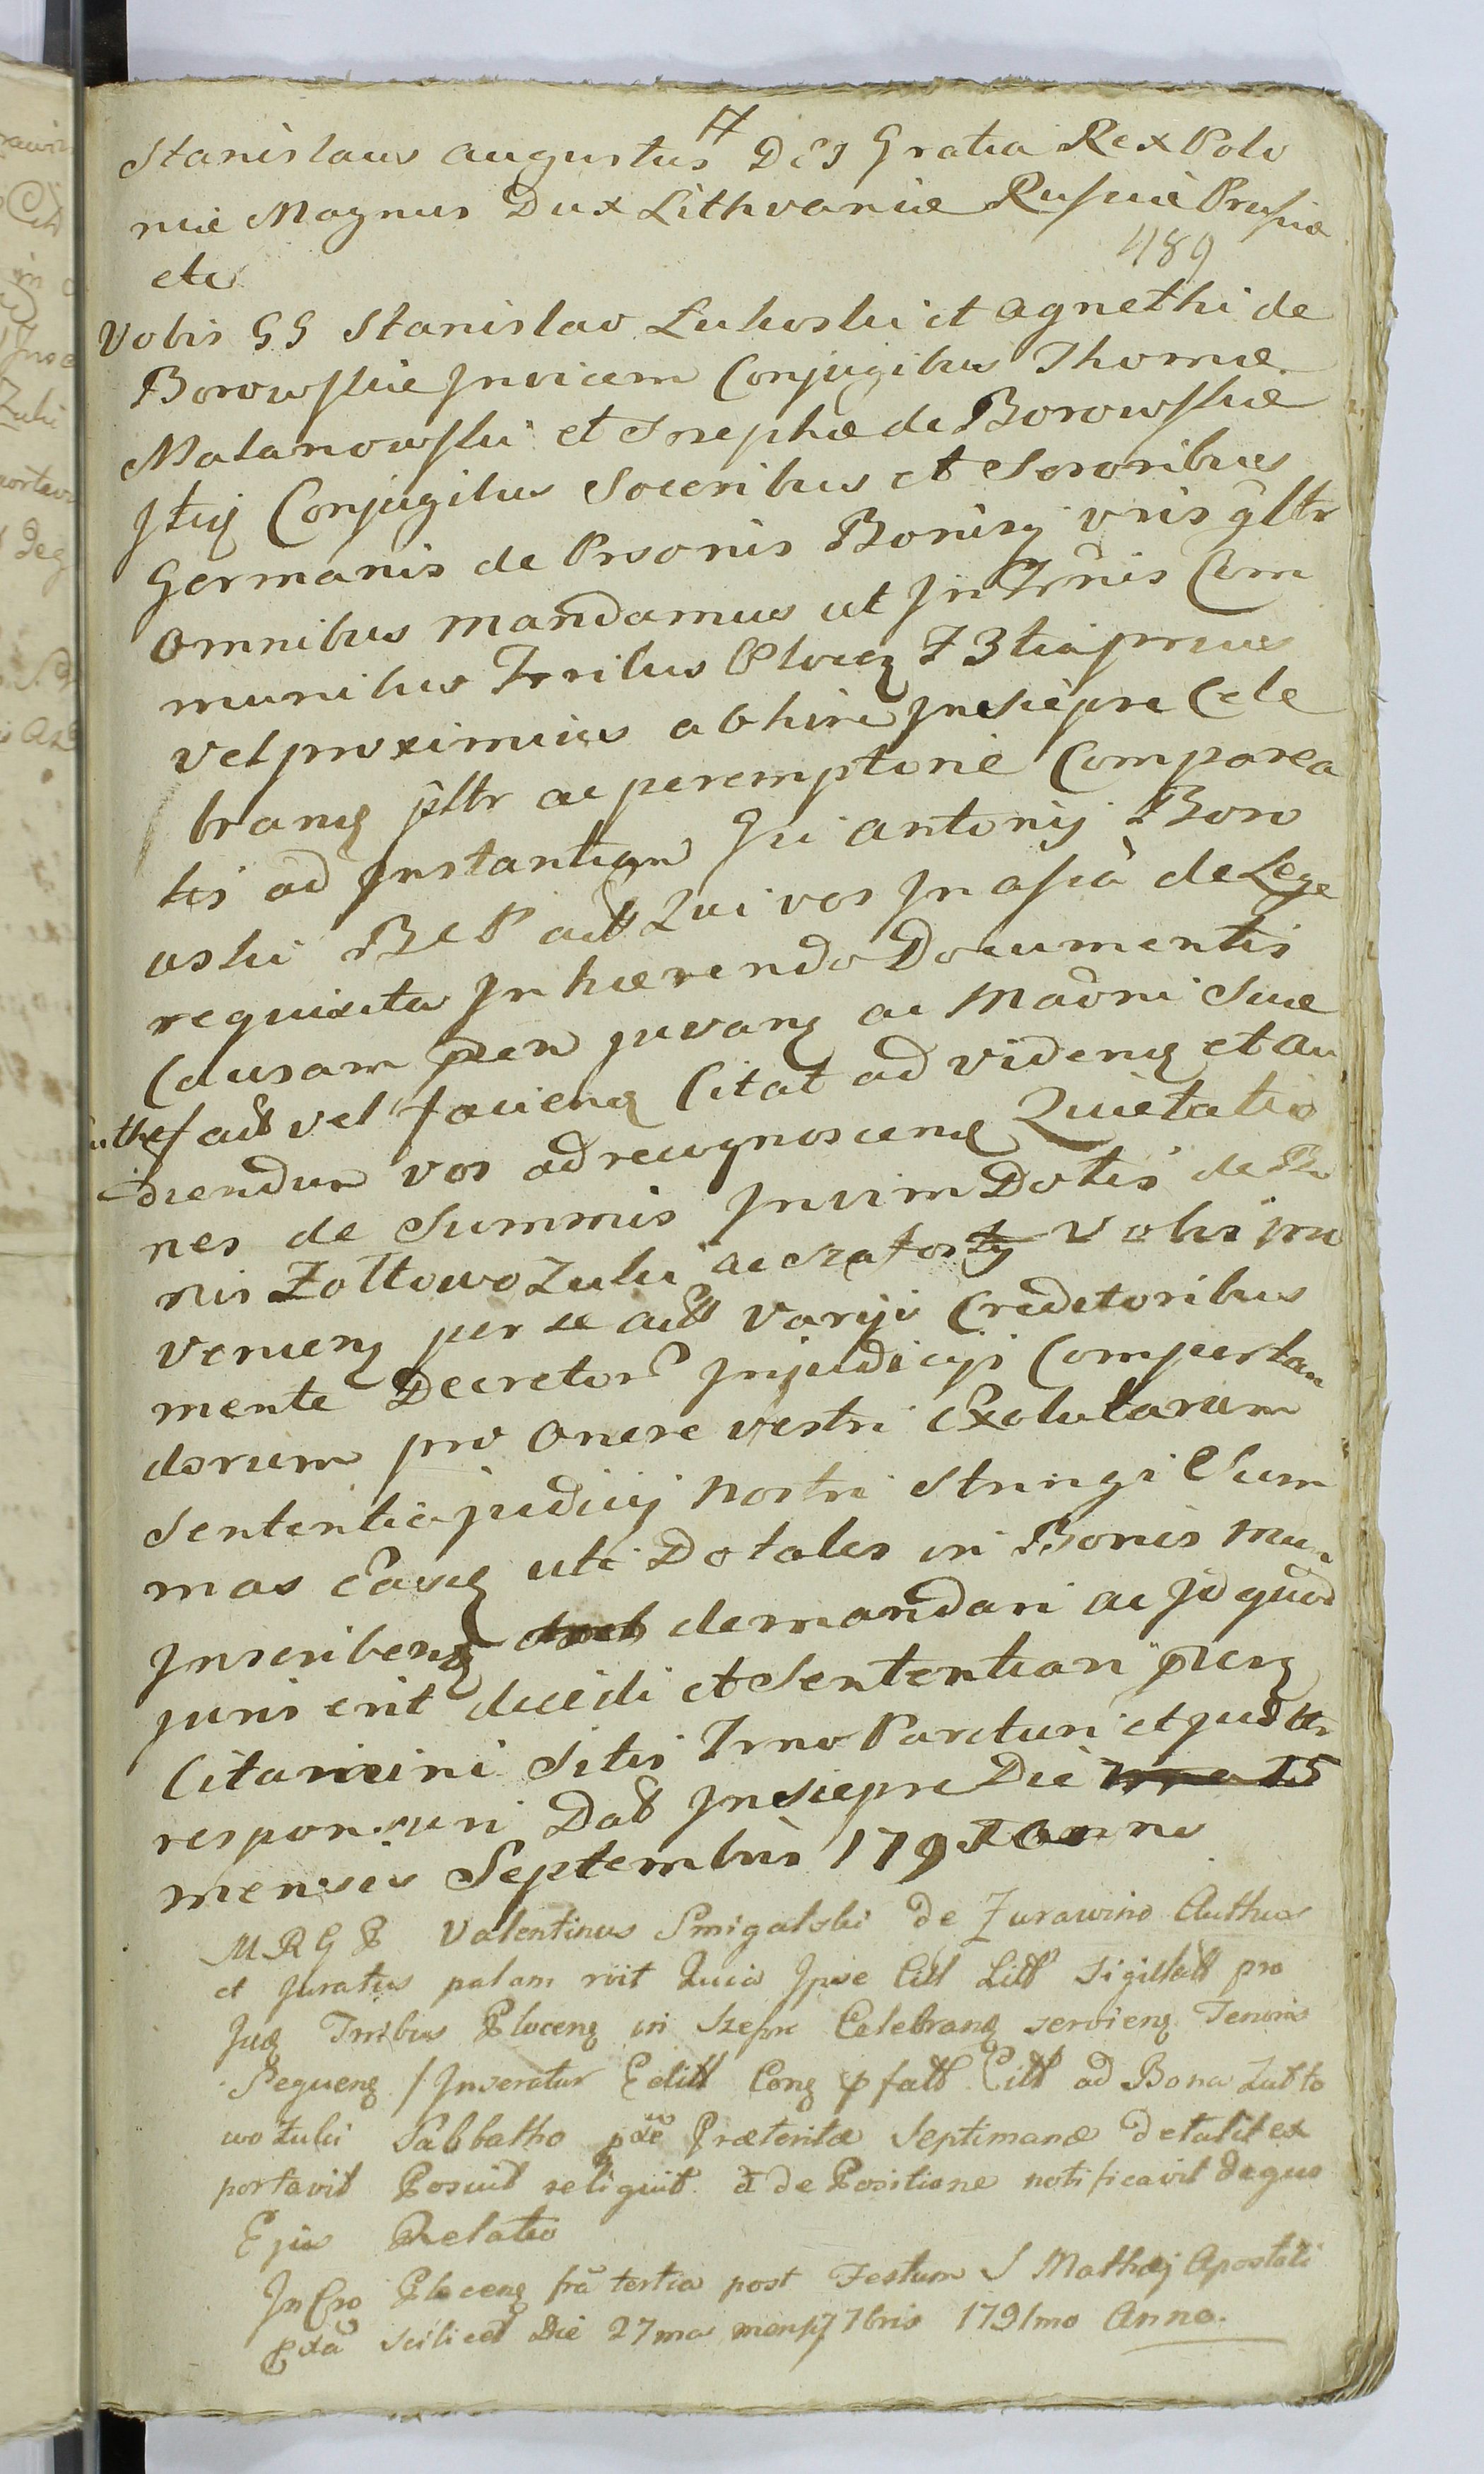 Stanislaus Augustus DEI Gratia Rex Polo
niæ Magnus Dux Lithvaniæ Rusiæ Prusiæ
489
etc
Vobis GG Stanislao Lukoski et Agnethi de
Borowskie Invicem Conjugibus Thomæ
Malanowski et Josephæ de Borowskie
Itiq Conjugibus Soceribus et Sororibus
Germanis de Prsonis Bonisq vris gltr
omnibus mandamus ut In Trnis Com
munibus Trrilus Plocen F 3tia prius
vel proximius abhinc In Siepre Cele
brang pltr ac peremptorie Comparea
tis ad Instantiam Gsi Antonij Boro
wski BCP act Qui vos In asia de Lege
requisita Inhærendo Documentis
Causam pten juvang ac Madni Suæ
fact vel facieng Citat ad videng et au
diendum vos ad recognosceng Quietatio
nes de Summis In vim Dotis de Bo
nis Zołtowo Zulki ac szafosty Vobis pro
venieng per se act varijs Creditoribus
mente Decretor Injudicijs Comportan
dorum pro onere vestri Exolutarum
Sententia judicij nostri Stringi Sum
mas Easq uti Dotales in Bonis
Inscribeng demandari ac Id quod
juris erit decidi et Sententiari pteng
Citari sini Sitis Trno Parituri et judttr
responsuri Dat In Siepre Die 15
mensis Septembris 1791 Anno
MRGP Valentinus Smigalski de Zurawino Authus
et Juratus palam rvit Quia Ipse Citt Litt Sigillatt pro
Juq Trribus Ploceng in Szepre Celebrang servieng Tenoris
Sequeng / Inseratur Editt Cong pfatt Citt ad Bona Zołto
wo Zulki Sabbatho pxe Præteritæ Septimanæ detulit ex
portavit Posuit reliquit et de Positione notificavit de quo
Ejus Relatio
In Cro Ploceng fra tertia post Festum S Mathæj Apostoli
pxa scilicet Die 27ma mensq 7bris 1791mo Anno.